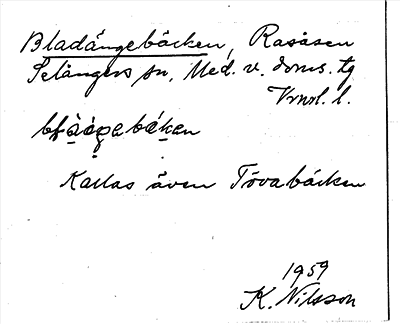 Bladängebäcken, Rasåsen
Selångers sn, Med. v. doms. tg
Vrnl. l.
kallas även Tövabäcken
1959
K. Nilsson